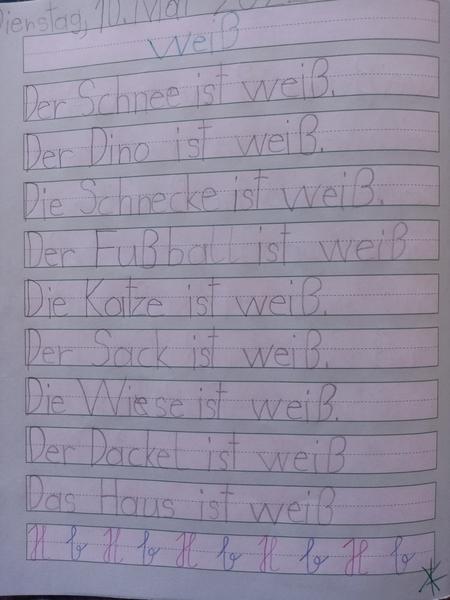 Dienstag, 10. Mai
Weiß
Der Schnee ist weiß.
Der Dino ist weiß.
Die Schnecke ist weiß.
Der Fußball ist weiß
Die Katze ist weiß.
Der Sack ist weiß.
Die Wiese ist weiß.
Der Dackel ist weiß
Das Haus ist weiß
H b H b H b H b H b